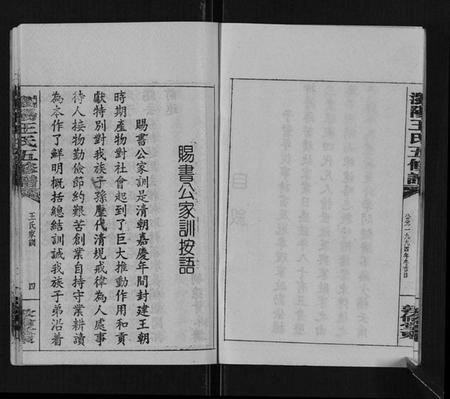 瀏陽王氏五修譜
公元一九九四年冬吉日
敦倫堂
賜書公家訓按語
賜書公家訓是清朝嘉慶年間封建王朝
時期產物對社會起到了巨大推動作用和貢
獻特別對我族子孫歷代清規戒律為人處事
待人接物勤儉節約艱苦創業自持守業耕讀
為本作了鮮明概括總結訓誡我族子弟沿着
瀏陽王氏五修譜
王氏家訓
四